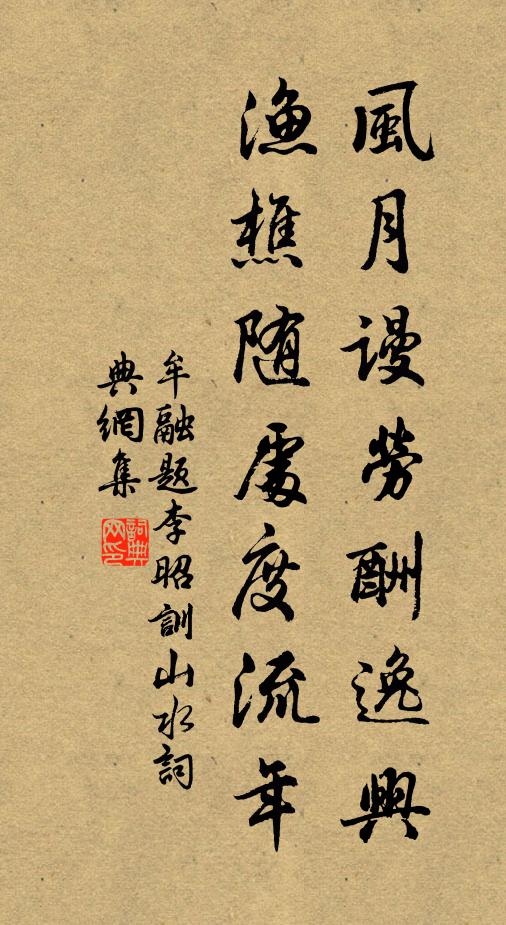 風月謾勞酬逸興
漁樵随處度流年
牟融題李昭訓山水詞
典網集
詞典网印